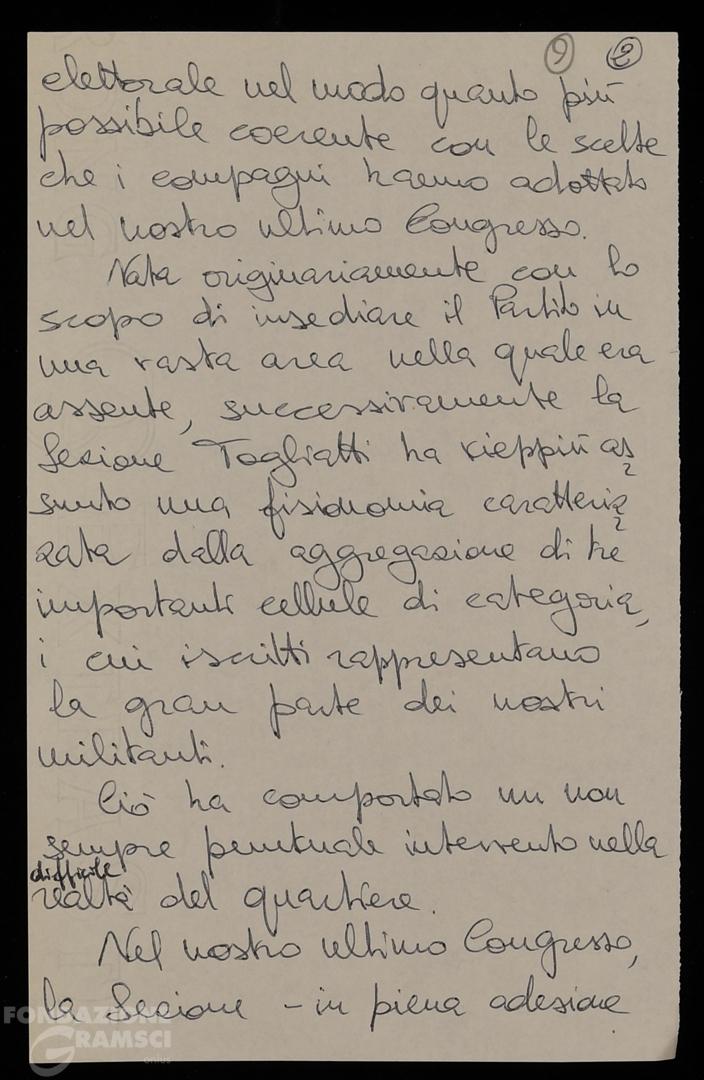 9 2
elettorale nel modo quanto più
possibile coerente con le scelte
che i compagni hanno adottato
nel nostro ultimo Congresso.
Nata originariamente con lo
scopo di insediare il Partito in
una vasta area nella quale era
assente, successivamente la
Sezione Togliatti ha vieppiù as
sunto una fisionomia caratteriz
zata dalla aggregazione di tre
importanti cellule di categoria,
i cui iscritti rappresentano
la gran parte dei nostri
militanti.
Ciò ha comportato un non
sempre puntuale intervento nella
difficile
realtà del quartiere.
Nel nostro ultimo Congresso,
la Sezione - in piena adesione
FONDAZIONE
GRAMSCI
onlus